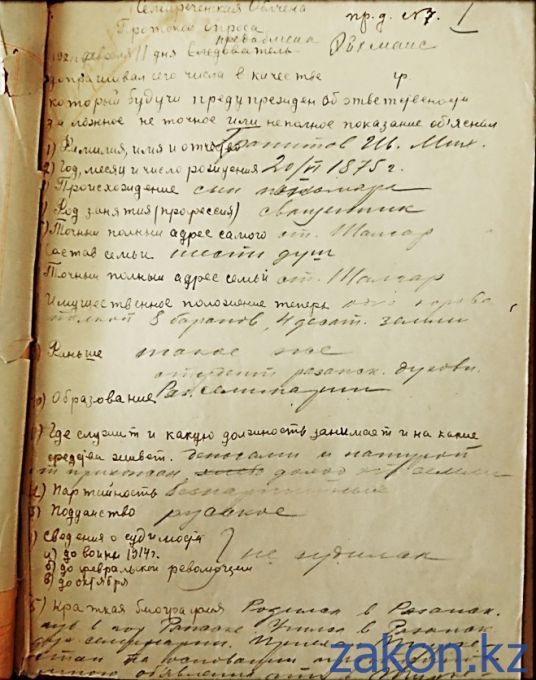 Семиреченская Облчека
пр.д. №7. 1
Протокол опроса
192 февраля 11 дня следователь
допрашивал сего числа в качестве гр.
который будучи предупрежден об ответствености
за ложное не точное или неполное показание об'яснил
1) Фамилия, имя и отчество Ив. Мих.
2) Год, месяц и число рождения 20/VI 1875 г.
) Происхождение сын пономаря
) Род занятия (профессия) священник
) Точный полный адрес самого ст. Шалгар
Состав семьи шесть душ
Точный полный адрес семьи ст. Шалгар
Имущественное положение теперь одна корова
8 баранов, 4 десят. земли
) Раньше такое же
студент рязанск. духовн.
10) Образование Ряз. семинарии
) Где служит и какую должность занимает и на какие
средства живет. деньгами и натурой
от прихожан доход от земли
12) Партийность Беспартийный
3) Подданство русское
) Сведения о судимости
а) до войны 1914 г. } не судился
б) до февральской революции
в) до октября
15) Краткая биография Родился в Рязанск.
Учился в Рязанск
семинарии.
на основании
zakon.kz